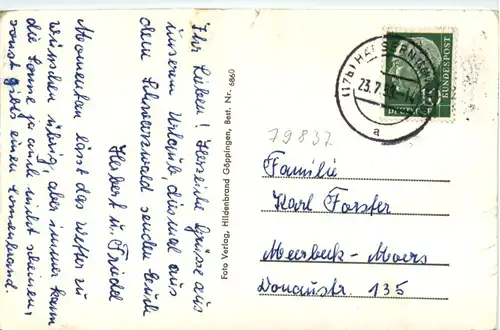 Ihr Lieben! Herzliche Grüsse aus
unserem Urlaub, diesmal aus
dem Schwarzwald senden Euch
Herbert u. Friedel
Momentan lässt das Wetter zu
wünschen übrig, aber immer kann
die Sonne ja auch nicht scheinen,
sonst gibts einen Sonnenbrand.
Foto Verlag, Hildenbrand Göppingen, Best. Nr. 6860
(17b)
23.7.
a
DEUTSCHE
BUNDESPOST
79832
Familie
Karl Forster
Meerbeck-Moers
Donaustr. 135